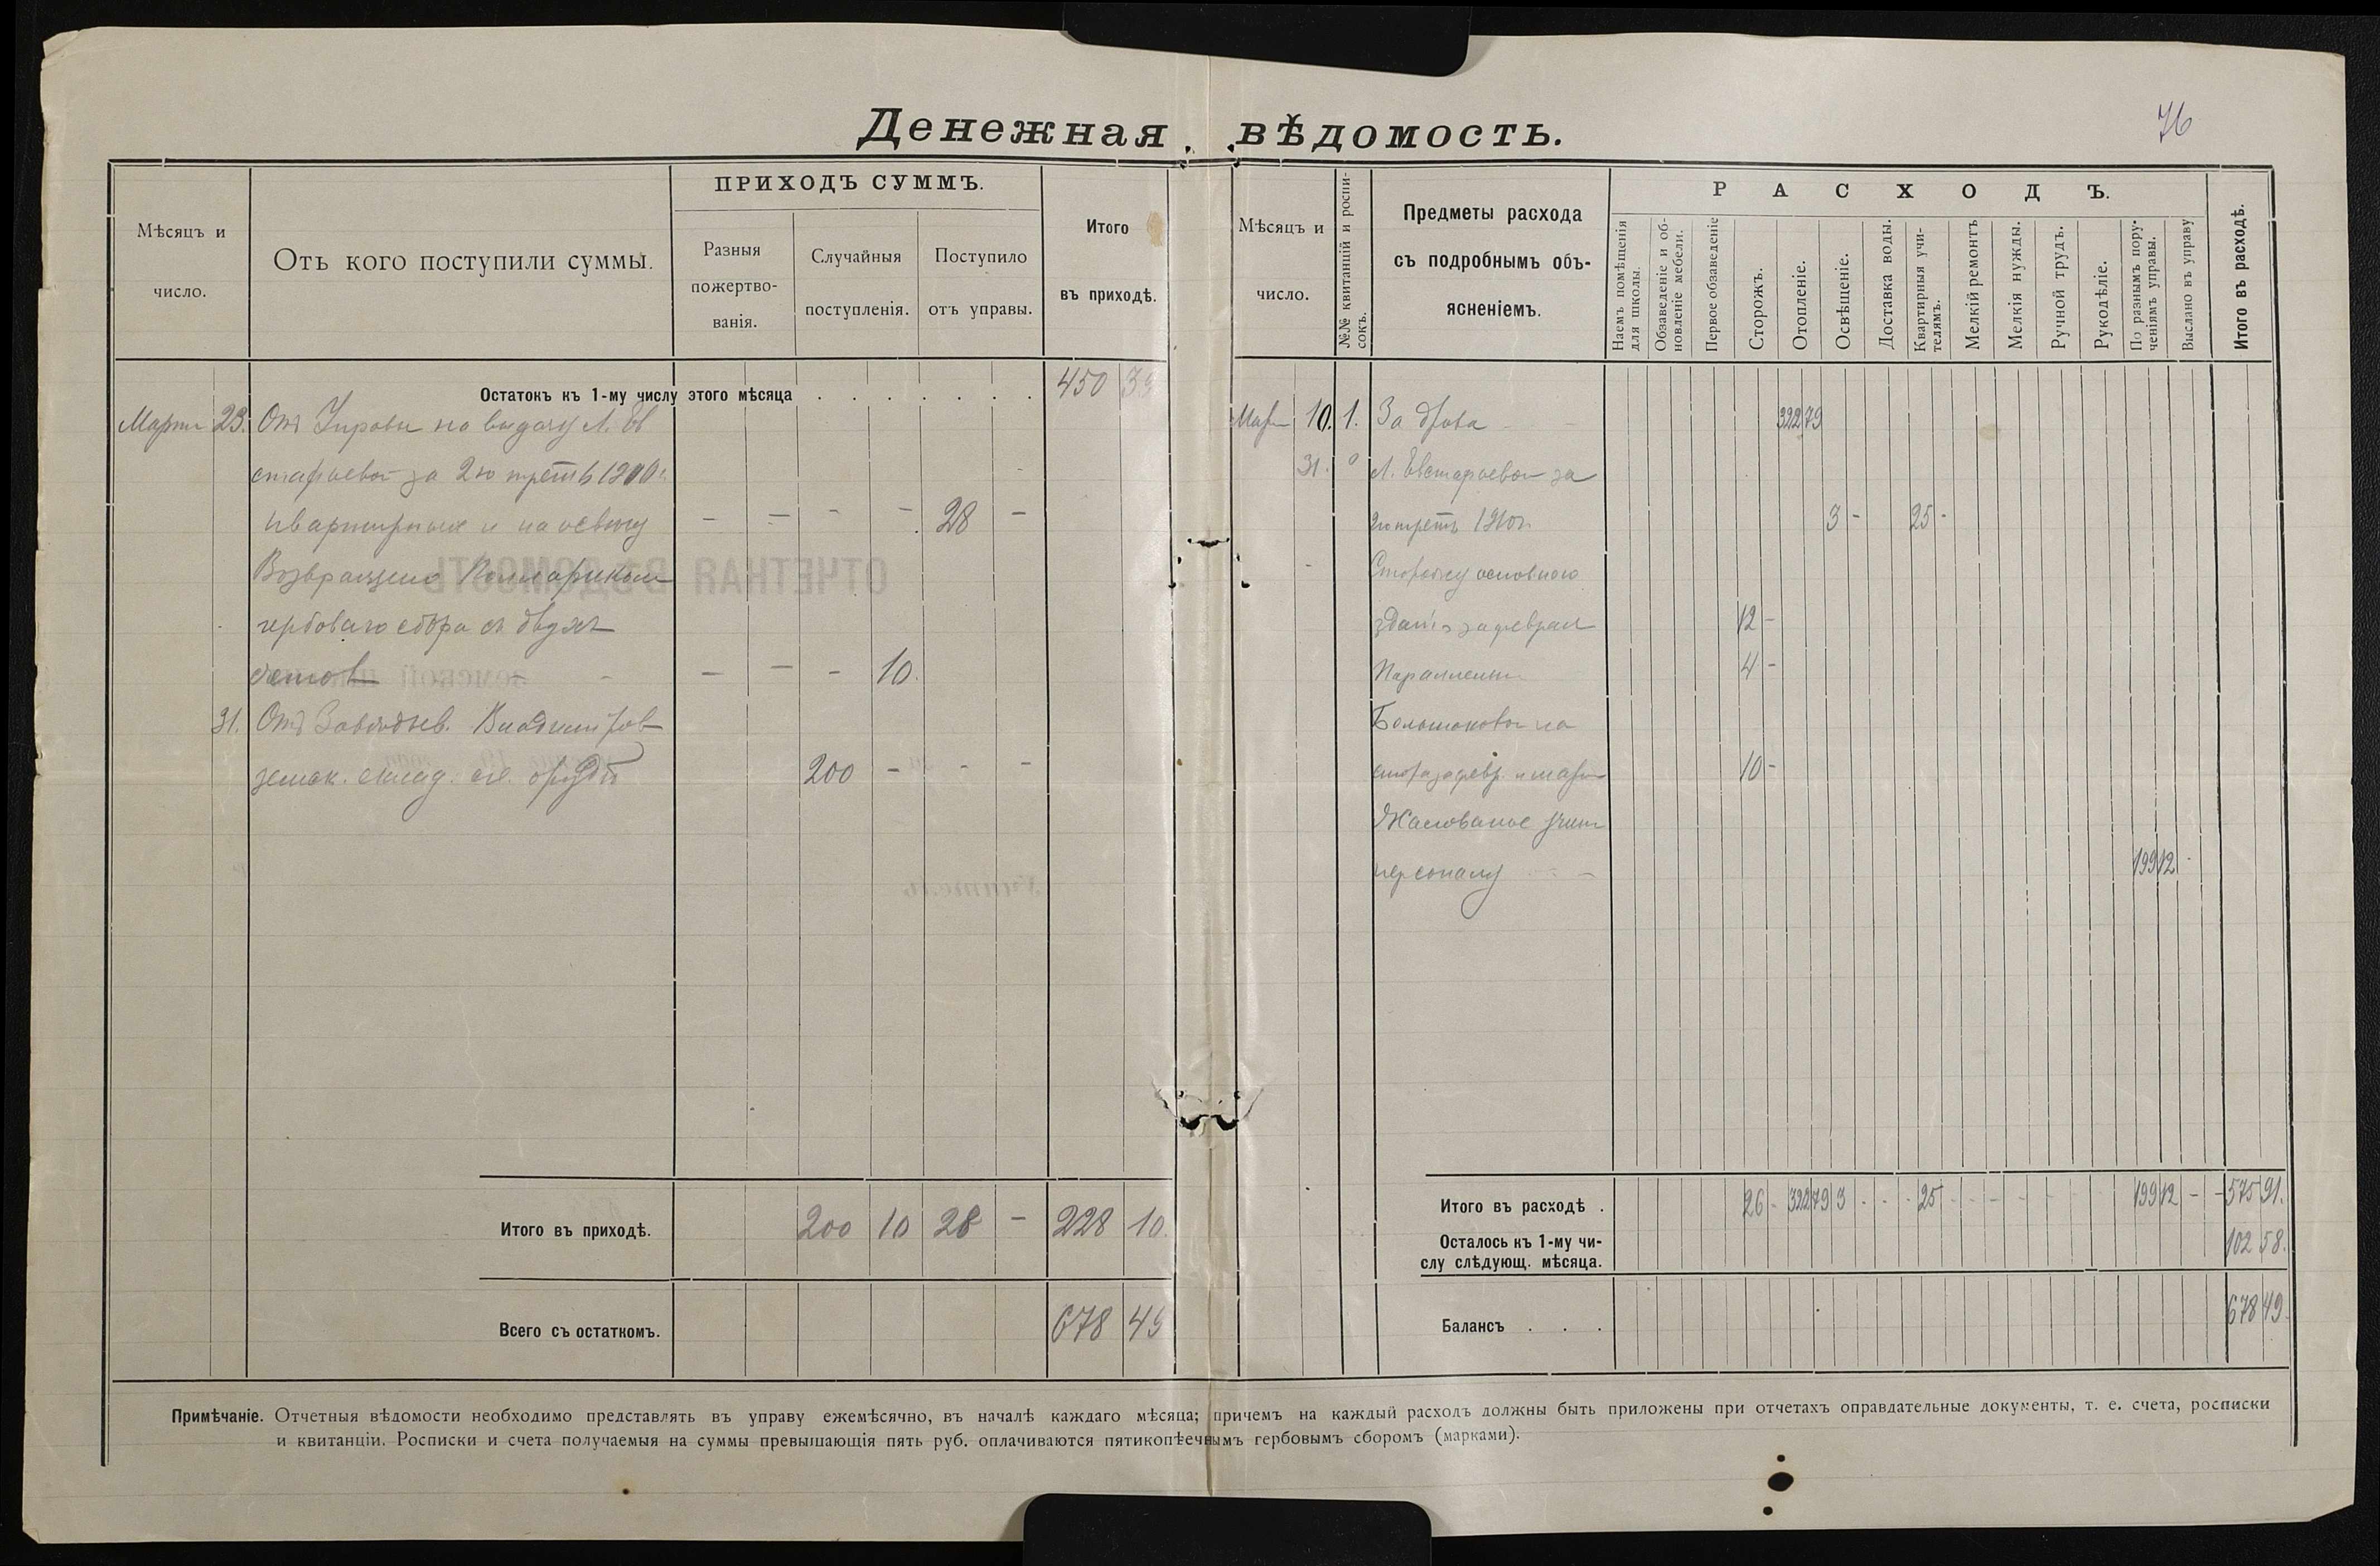 76
Денежная вѣдомость.
Мѣсяцъ и
число.
Отъ кого поступили суммы.
ПРИХОДЪ СУММЪ.
Разныя
пожертво-
ванія.
Случайныя
поступленія.
Поступило
отъ управы.
Итого
въ приходѣ.
Остатокъ къ 1-му числу этого мѣсяца . . . . . . . 450 39
Мартъ 23. Отъ Управы на выдачу Л. Ев
стафьевой за 2ю треть 1910 г.
квартирныхъ и на освѣщ - - - - 28 -
Возвращено
гербоваго сбора съ двухъ
счетовъ - - - 10.
31. Отъ Завѣдыв. Владимiров
земск. склад. с.х. орудій 200 - - -
Итого въ приходѣ. 200 10 28 - 228 10.
Всего съ остаткомъ. 678 49
Мѣсяцъ и
число.
№№ квитанцій и роспи-
сокъ.
Предметы расхода
съ подробнымъ объ-
ясненіемъ.
РАСХОДЪ.
Наемъ помѣщенія
для школы.
Обзаведеніе и об-
новленіе мебели.
Первое обзаведеніе
Сторожъ.
Отопленіе.
Освѣщеніе.
Доставка воды.
Квартирныя учи-
телямъ.
Мелкій ремонтъ
Мелкія нужды.
Ручной трудъ.
Рукодѣліе.
По разнымъ пору-
ченіямъ управы.
Выслано въ управу
Итого въ расходѣ.
Мар 10. 1. За дрова 322 79
31. Л. Евстафьевой за
2ю треть 1910 г. 3 - 25 -
Сторожу основного
зданія за феврал 12 -
Параллельн 4 -
Большаковой на
сторожа за февр. и март 10 -
Жалованье учит
персоналу 199 12
Итого въ расходѣ . 26 - 322 79 3 - - - 25 - - - 199 12 - - 575 91.
Осталось къ 1-му чи-
слу слѣдующ. мѣсяца. 102 58.
Балансъ . . . 678 49.
Примѣчаніе. Отчетныя вѣдомости необходимо представлять въ управу ежемѣсячно, въ началѣ каждаго мѣсяца; причемъ на каждый расходъ должны быть приложены при отчетахъ оправдательные документы, т. е. счета, росписки
и квитанціи. Росписки и счета получаемыя на суммы превышающія пять руб. оплачиваются пятикопѣечнымъ гербовымъ сборомъ (марками).